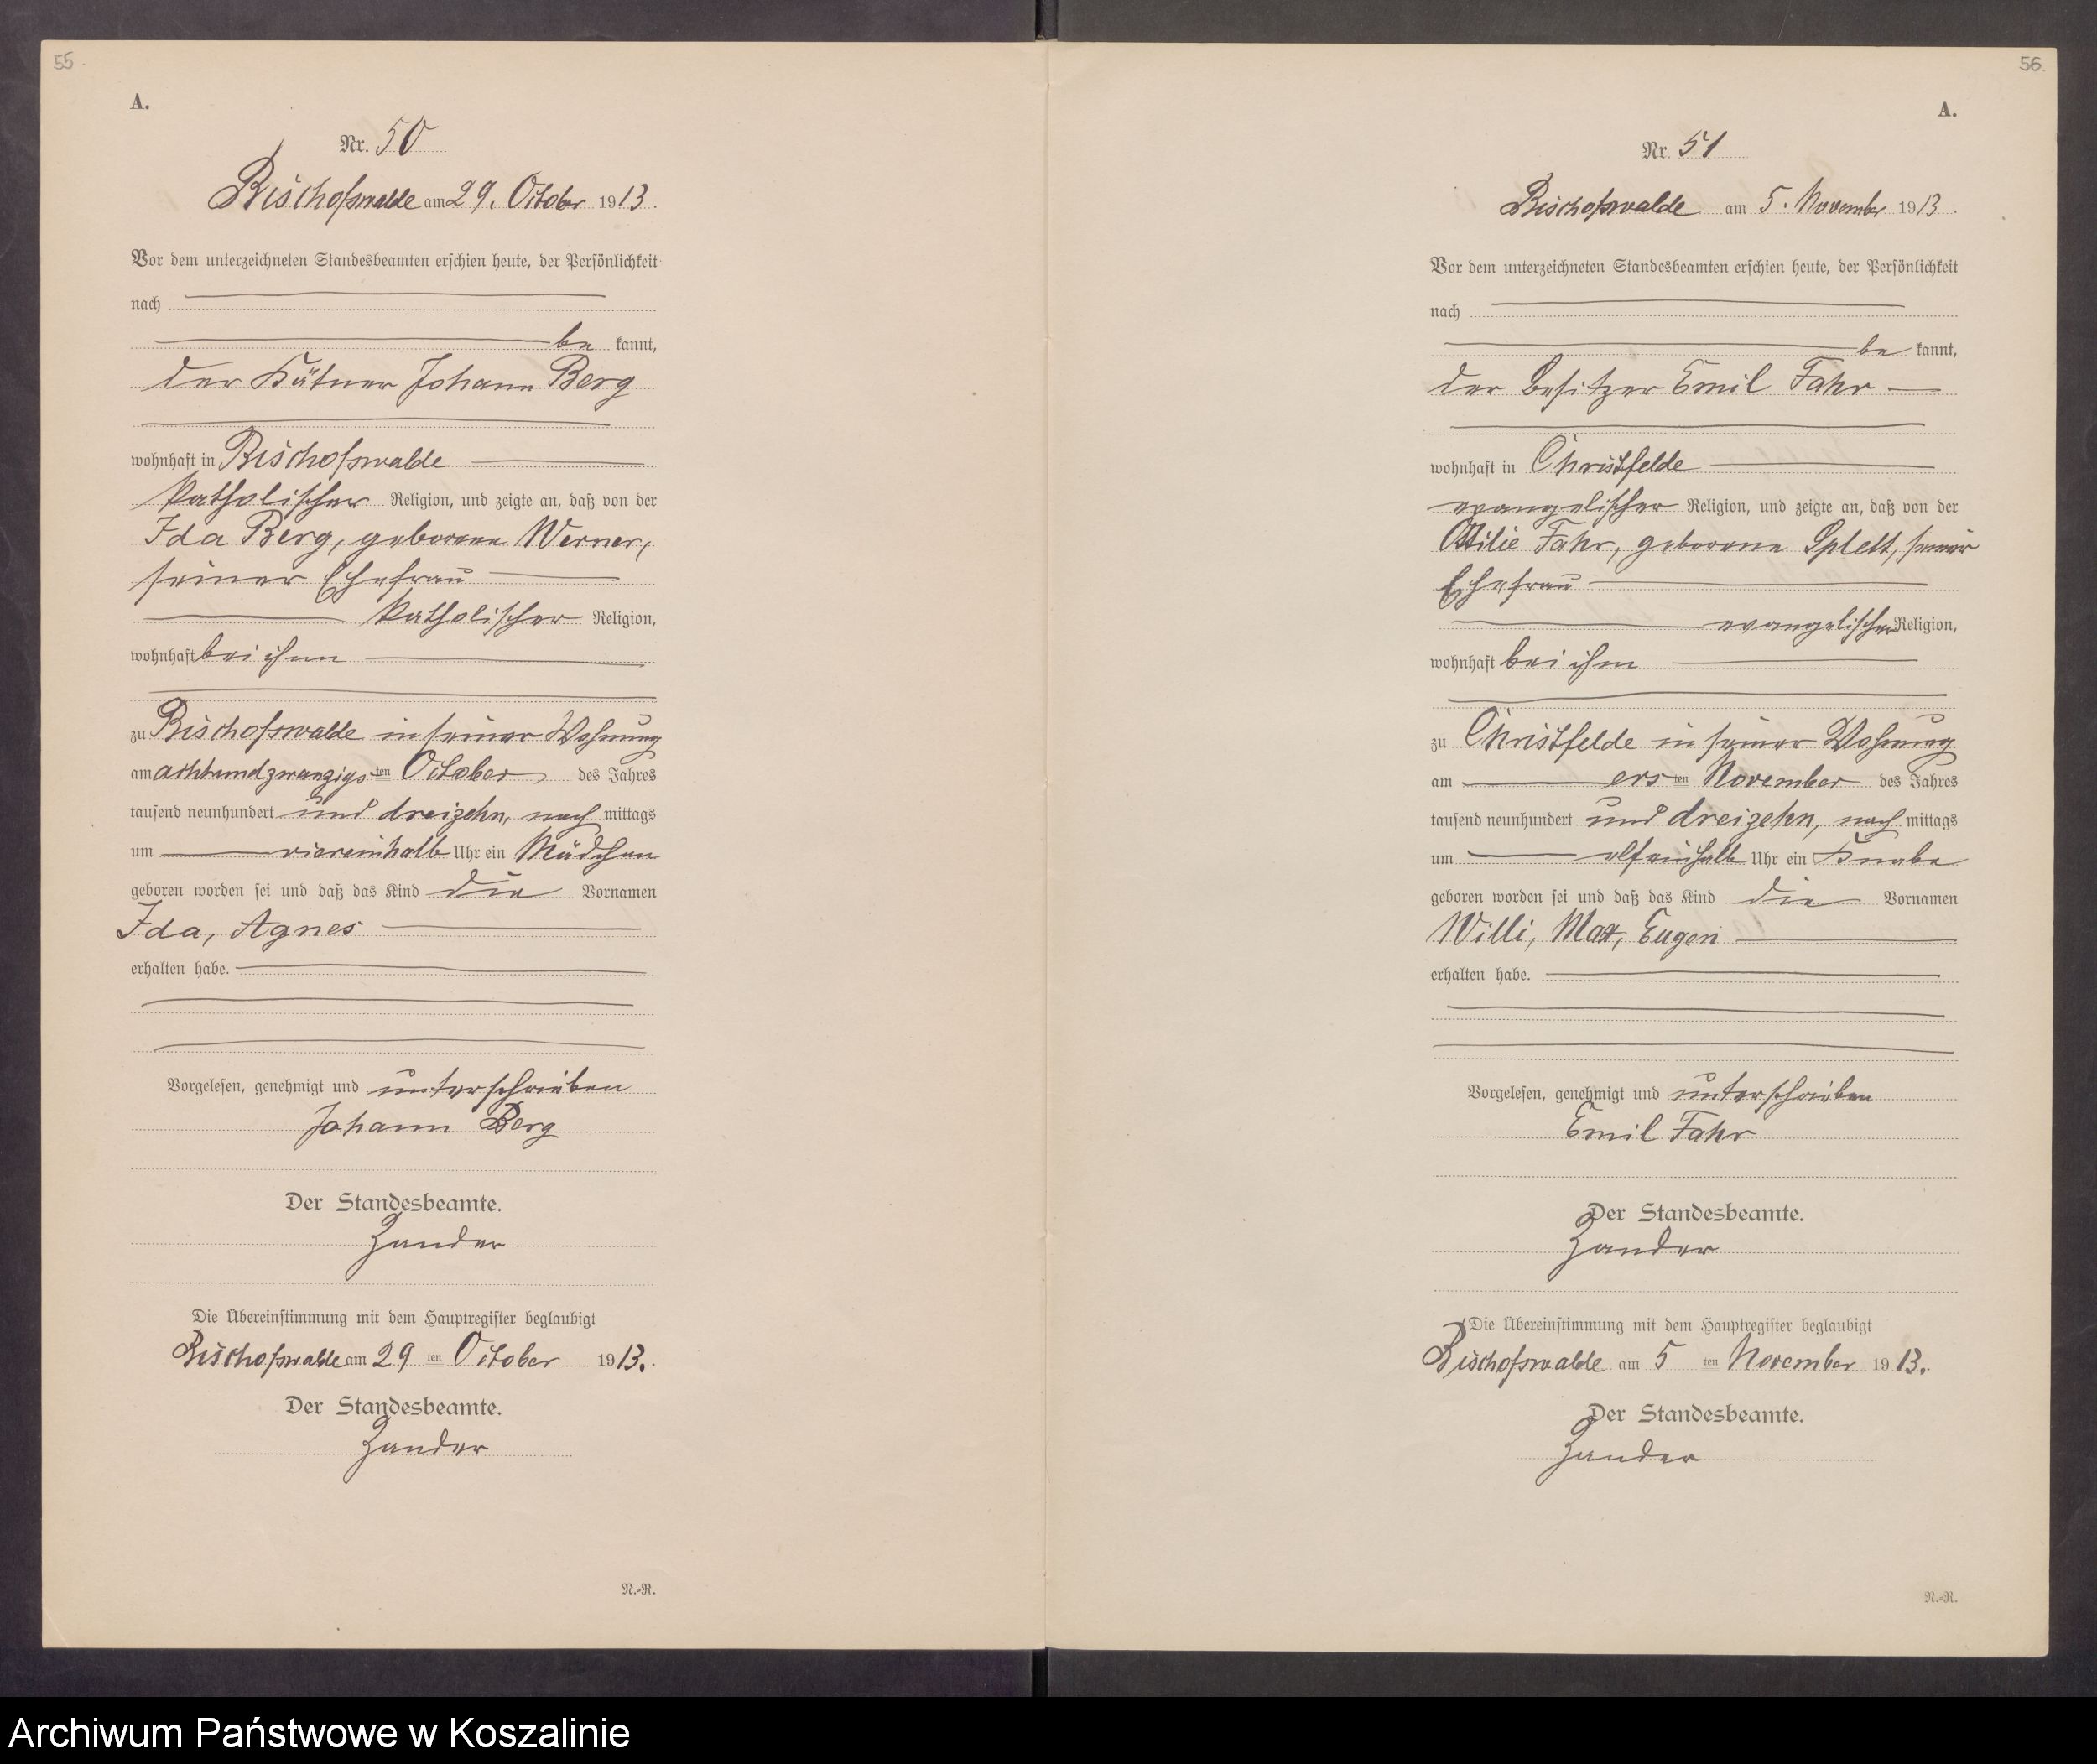 55.
A.
Nr. 50
Bischofswalde am 29. October 1913.
Vor dem unterzeichneten Standesbeamten erschien heute, der Persönlichkeit
nach
be kannt,
der Kätner Johann Berg
wohnhaft in Bischofswalde
katholischer Religion, und zeigte an, daß von der
Ida Berg, geborene Werner,
seiner Ehefrau
katholischer Religion,
wohnhaft bei ihm
zu Bischofswalde in seiner Wohnung
am achtundzwanzigs ten October des Jahres
tausend neunhundert und dreizehn, nach mittags
um viereinhalb Uhr ein Mädchen
geboren worden sei und daß das Kind die Vornamen
Ida, Agnes
erhalten habe.
Vorgelesen, genehmigt und unterschrieben
Johann Berg
Der Standesbeamte.
Zander
Die Übereinstimmung mit dem Hauptregister beglaubigt
Bischofswalde am 29 ten October 1913.
Der Standesbeamte.
Zander
N.-R.
56.
A.
Nr. 51
Bischofswalde am 5. November 1913.
Vor dem unterzeichneten Standesbeamten erschien heute, der Persönlichkeit
nach
be kannt,
der Besitzer Emil Fahr
wohnhaft in Christfelde
evangelischer Religion, und zeigte an, daß von der
Ottilie Fahr, geborene Splett, seiner
Ehefrau
evangelischer Religion,
wohnhaft bei ihm
zu Christfelde in seiner Wohnung
am ers ten November des Jahres
tausend neunhundert und dreizehn, nach mittags
um elfeinhalb Uhr ein Knabe
geboren worden sei und daß das Kind die Vornamen
Willi, Max, Eugen
erhalten habe.
Vorgelesen, genehmigt und unterschrieben
Emil Fahr
Der Standesbeamte.
Zander
Die Übereinstimmung mit dem Hauptregister beglaubigt
Bischofswalde am 5 ten November 1913.
Der Standesbeamte.
Zander
N.-R.
Archiwum Państwowe w Koszalinie